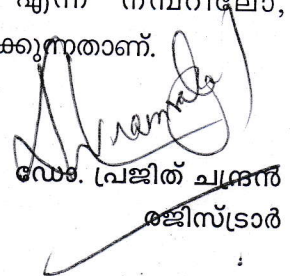 എന്ന നമ്പറിലോ,
ക്കുന്നതാണ്.
ഡോ. പ്രജിത് ചന്ദ്രൻ
രജിസ്ട്രാർ